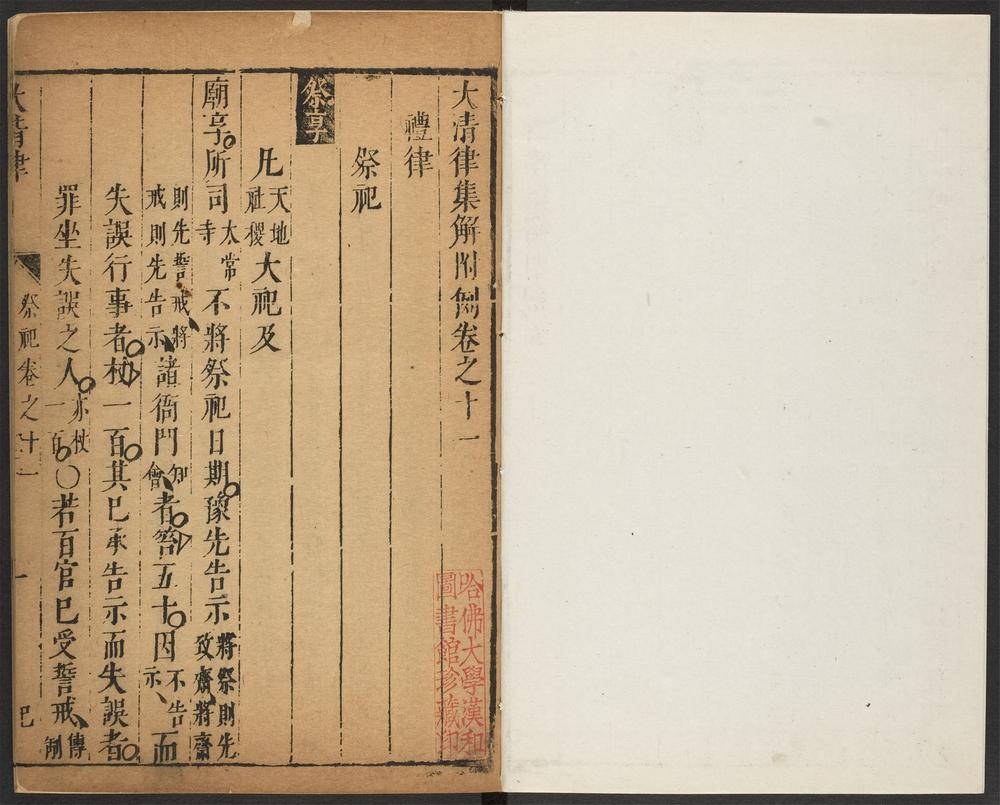 大清律集解附例卷之十一
禮律
祭祀
祭享
凡天地社稷大祀及
廟享所司太常寺不將祭祀日期豫先告示將祭則先致齋將齋
則先誓戒將戒則先告示諸衙門知會者笞五十因不告示而
失誤行事者杖一百其已承告示而失誤者
罪坐失誤之人亦杖一百〇若百官已受誓戒傳制
大清律 祭祀卷之十一 一
哈佛大學漢和
圖書館珍藏印